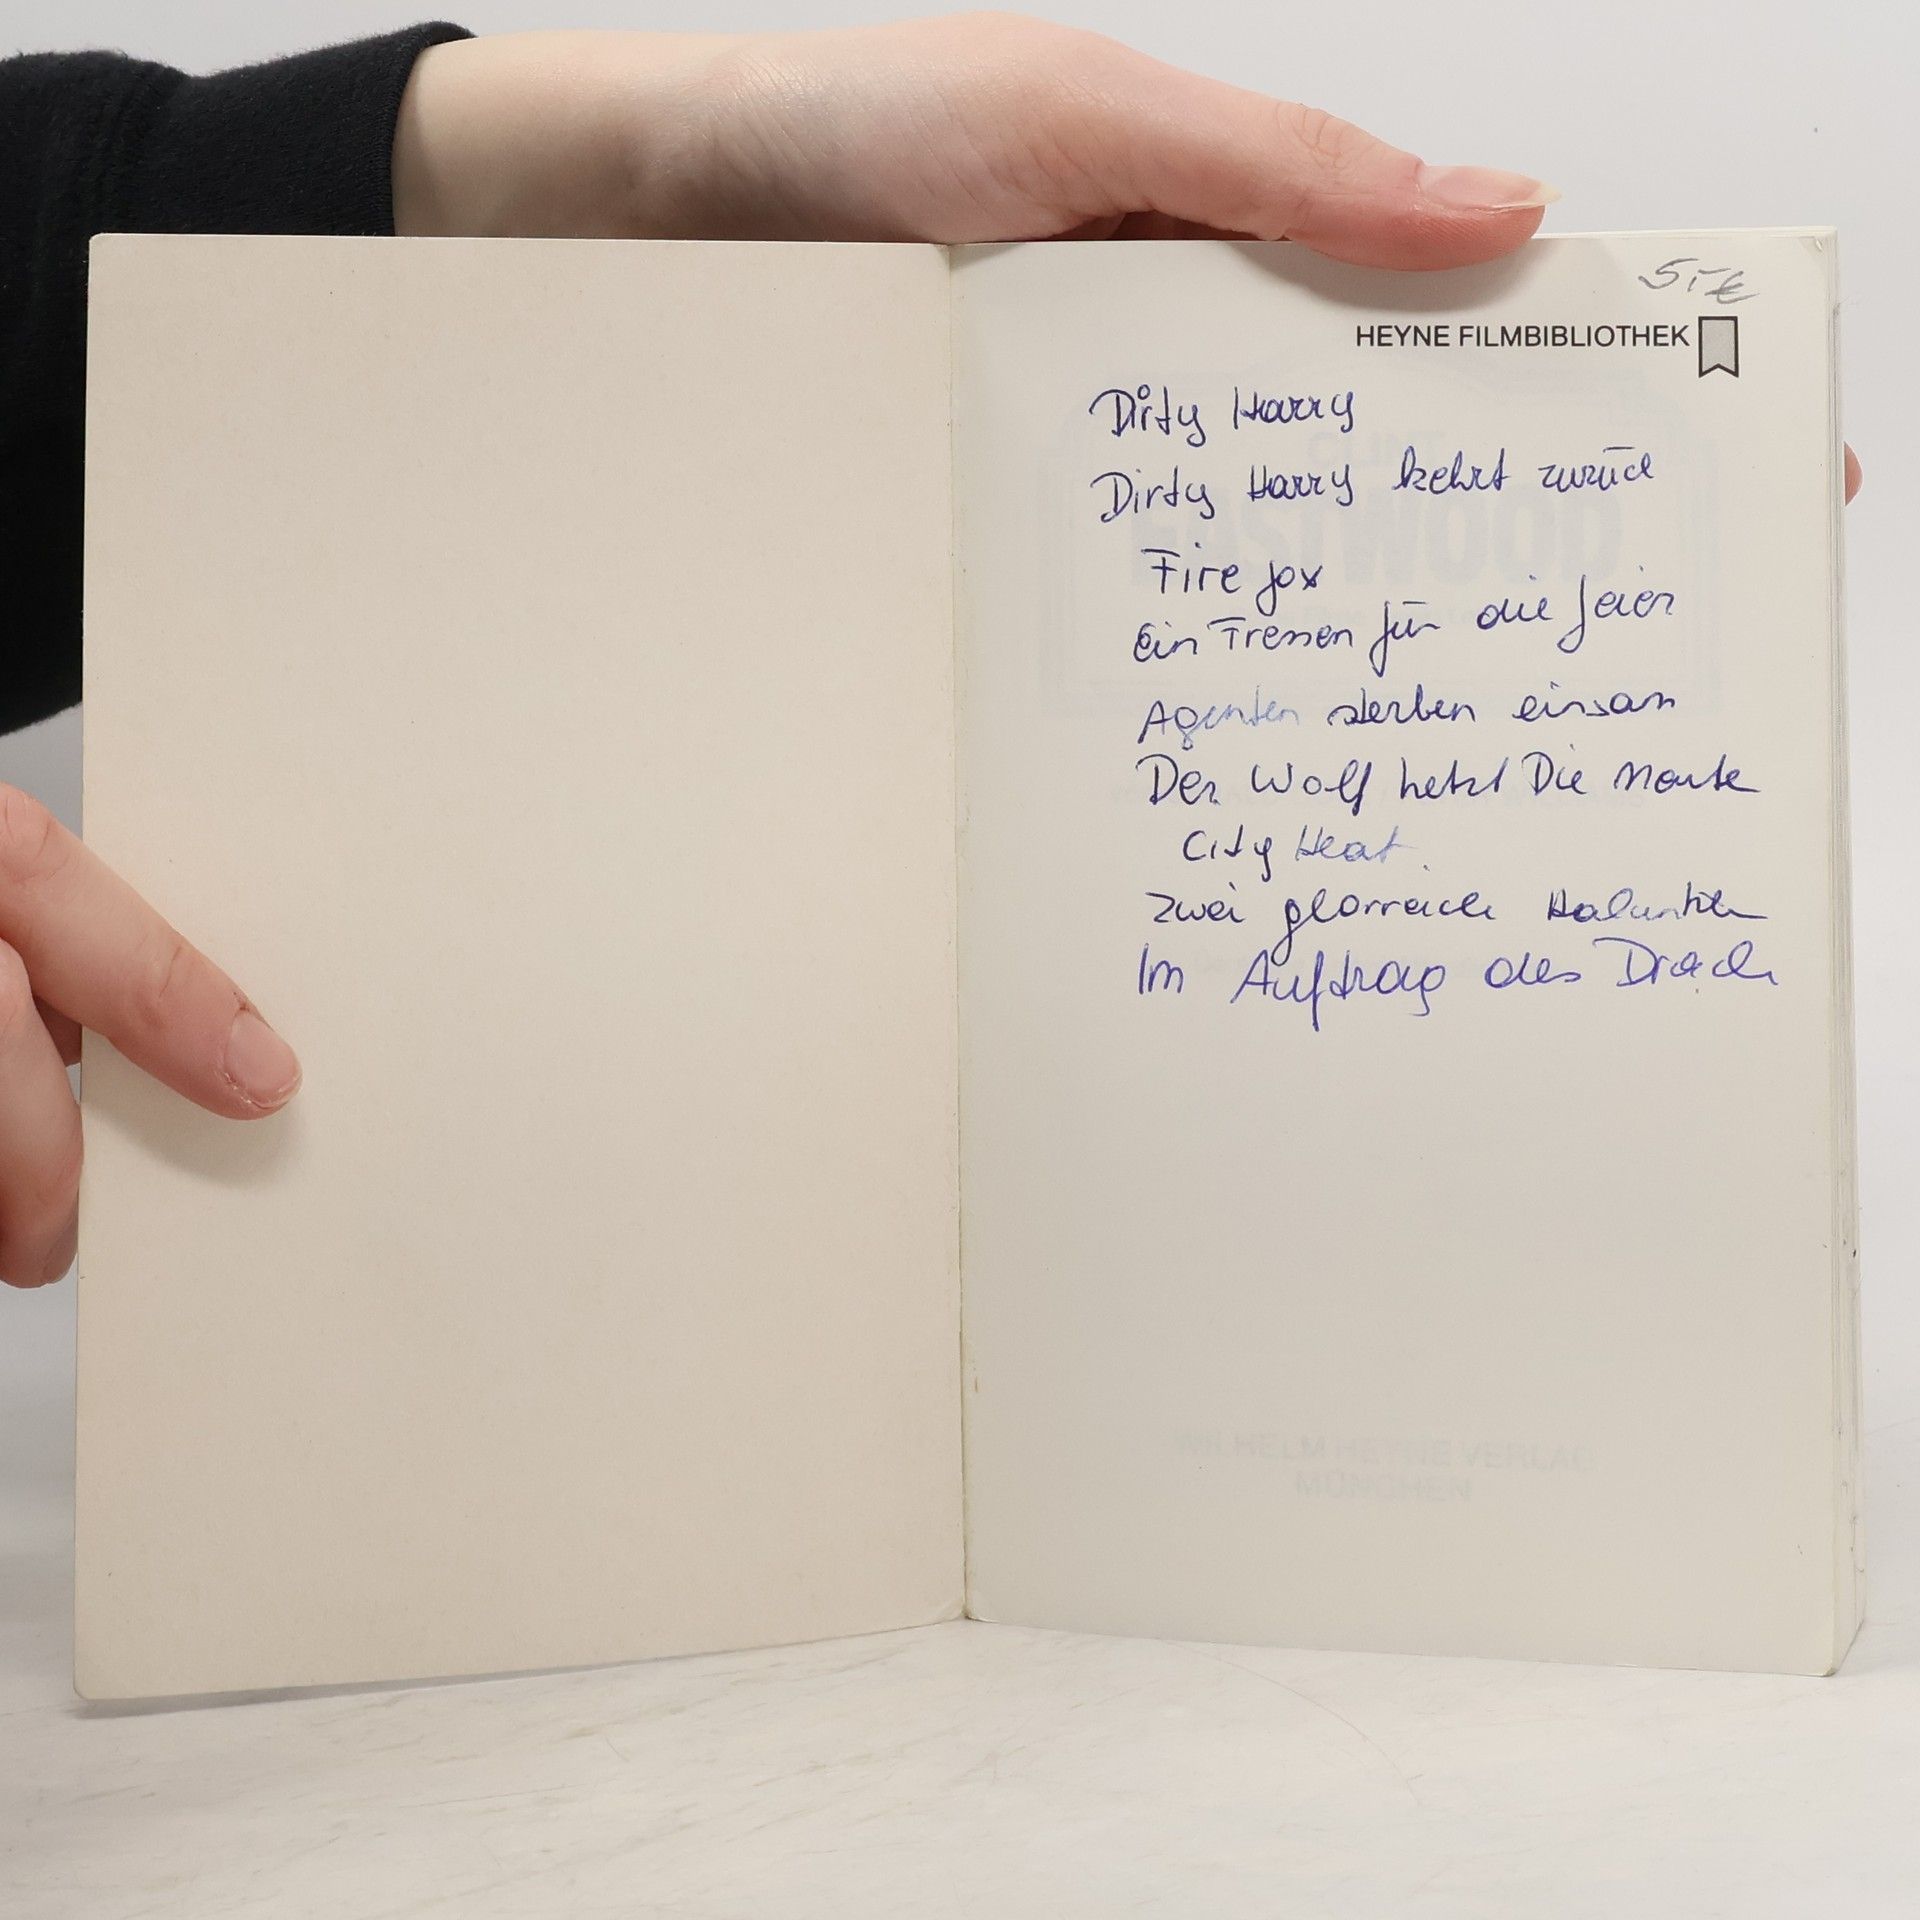 5,-€
HEYNE FILMBIBLIOTHEK
Dirty Harry
Dirty Harry kehrt zurück
Fire fox
Ein Fressen für die Geier
Agenten sterben einsam
Der Wolf hetzt Die Meute
City Heat
zwei glorreiche Halunken
Im Auftrag des Drach
CLINT
EASTWOOD
WILHELM HEYNE VERLAG
MÜNCHEN